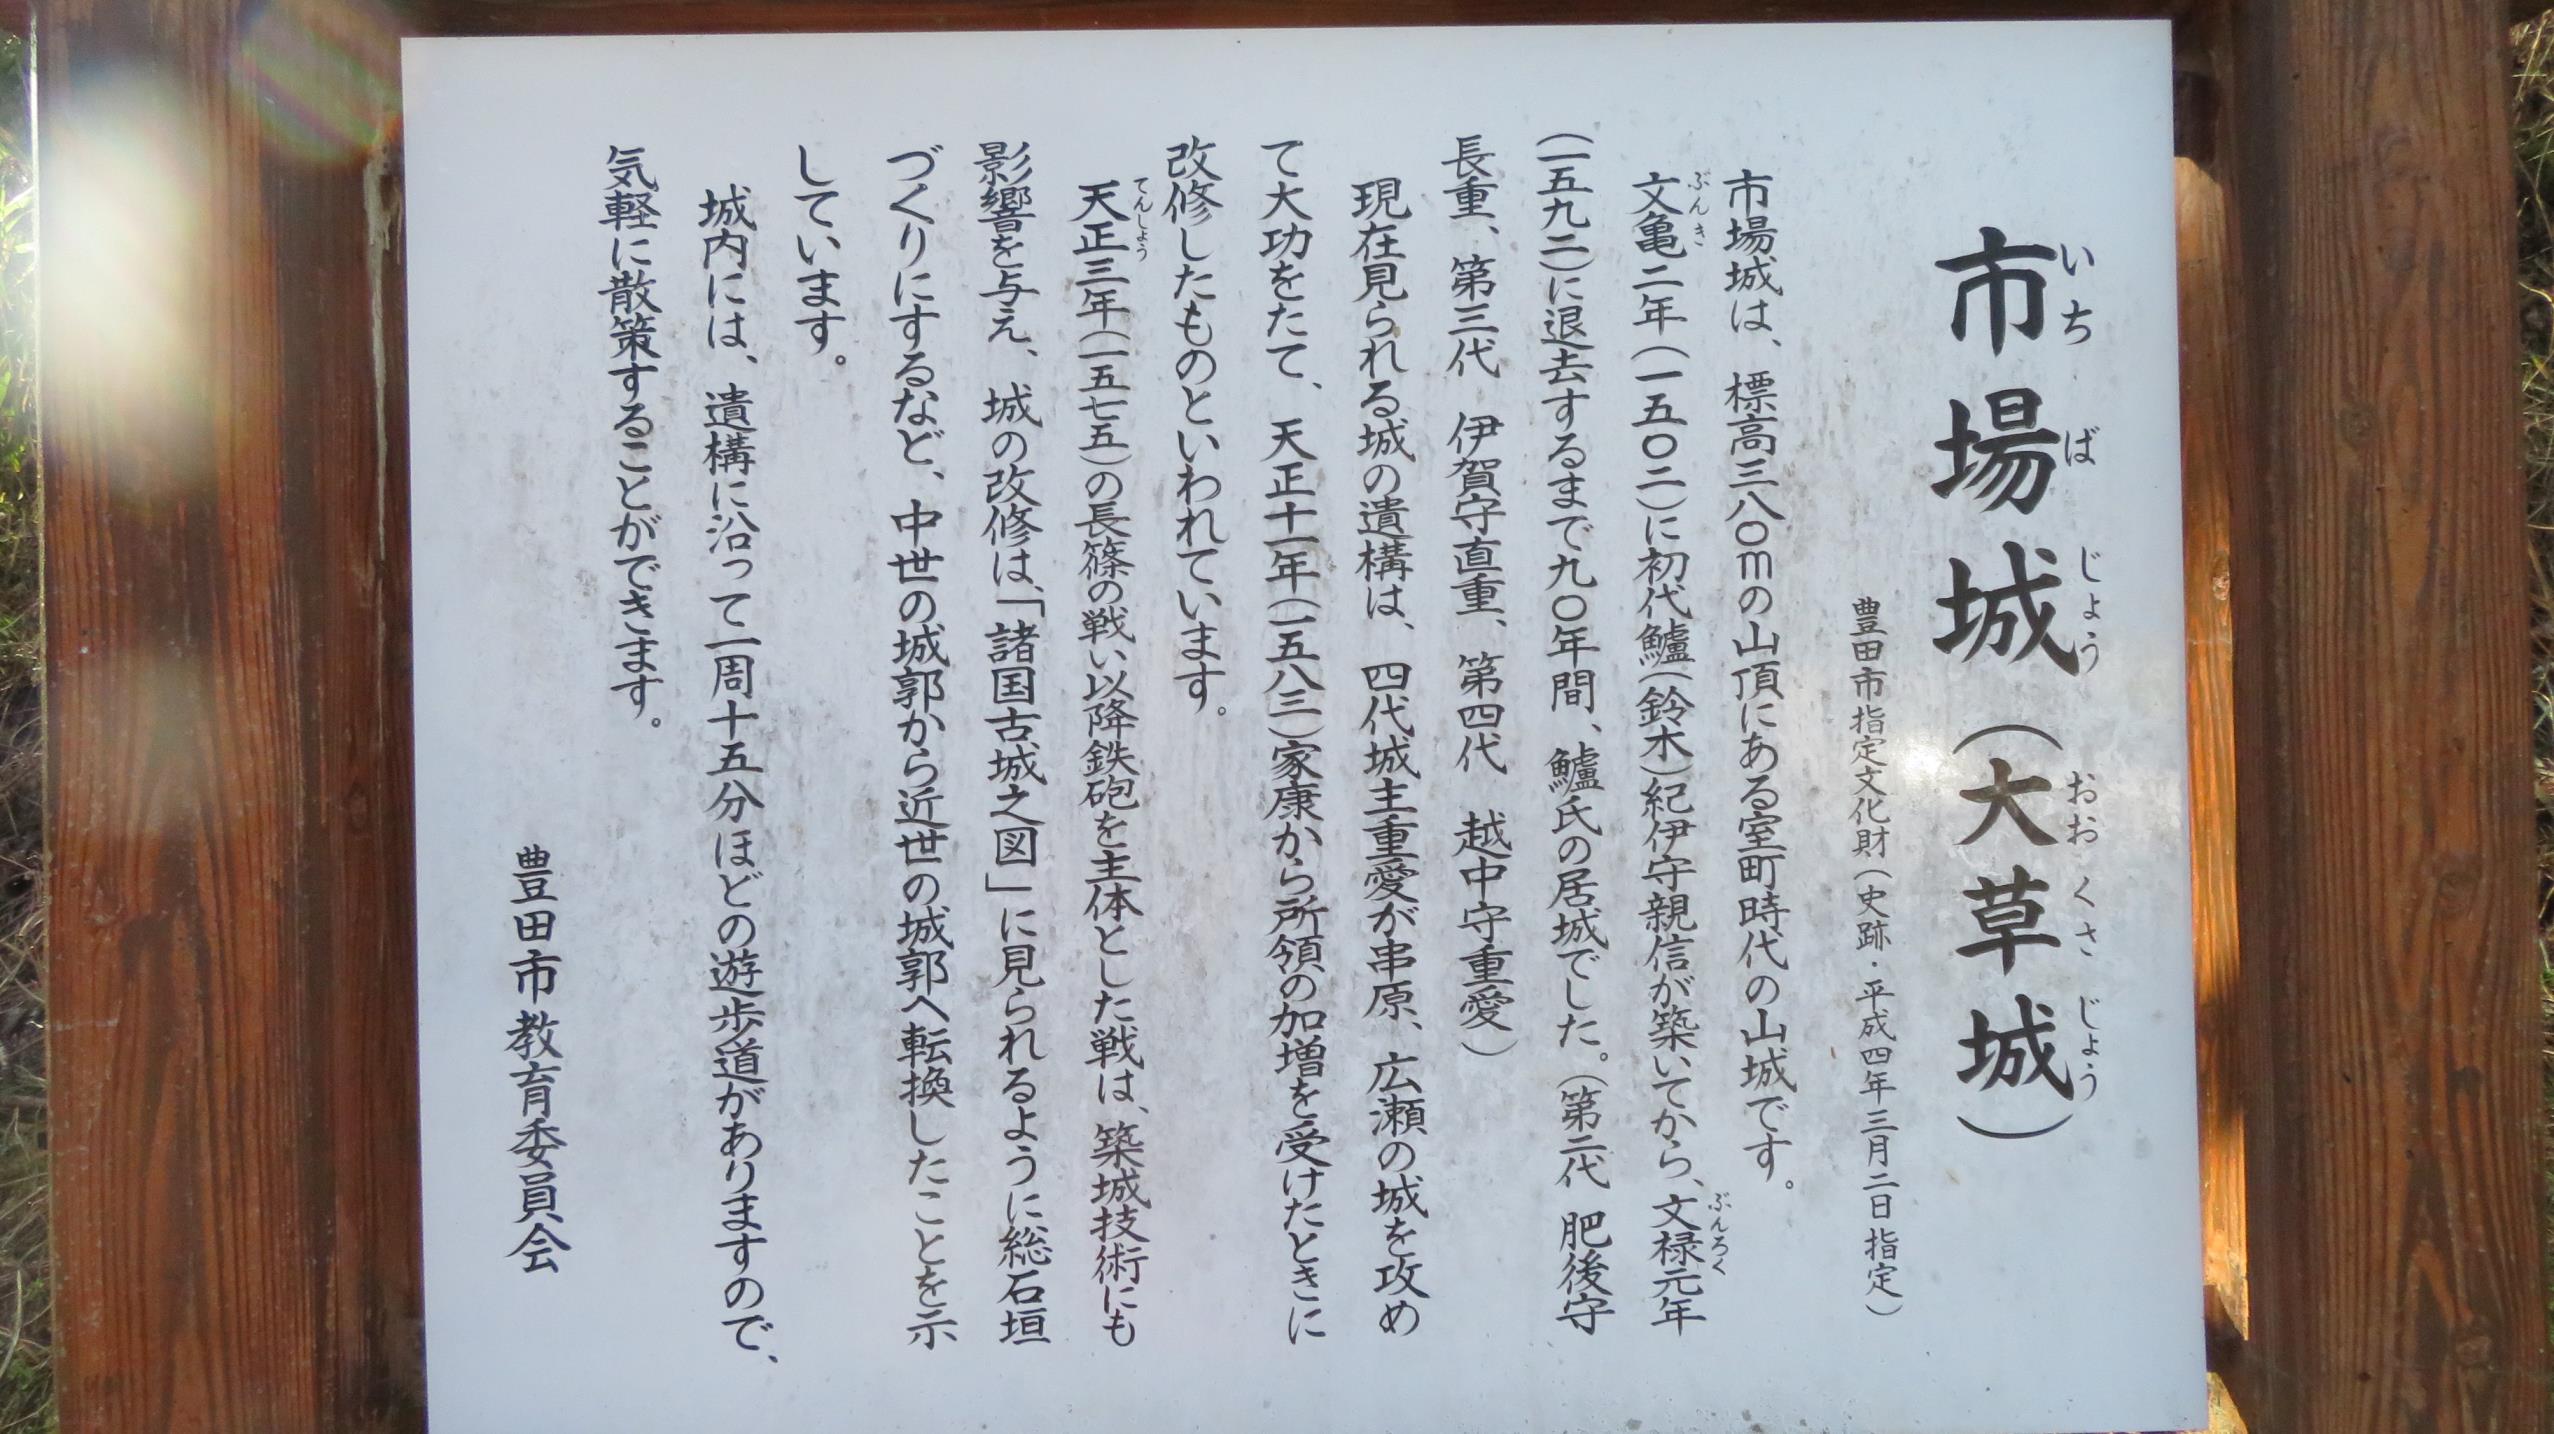 市場城（大草城）
いちばじょう　おおくさじょう
豊田市指定文化財（史跡・平成四年三月二日指定）
市場城は、標高三八〇mの山頂にある室町時代の山城です。
文亀二年（一五〇二）に初代鱸（鈴木）紀伊守親信が築いてから、文禄元年
ぶんき　ぶんろく
（一五九二）に退去するまで九〇年間、鱸氏の居城でした。（第二代　肥後守
長重、第三代　伊賀守直重、第四代　越中守重愛）
現在見られる城の遺構は、四代城主重愛が串原、広瀬の城を攻め
て大功をたて、天正十一年（一五八三）家康から所領の加増を受けたときに
改修したものといわれています。
天正三年（一五七五）の長篠の戦い以降鉄砲を主体とした戦は、築城技術にも
てんしょう
影響を与え、城の改修は、「諸国古城之図」に見られるように総石垣
づくりにするなど、中世の城郭から近世の城郭へ転換したことを示
しています。
城内には、遺構に沿って一周十五分ほどの遊歩道がありますので、
気軽に散策することができます。
豊田市教育委員会